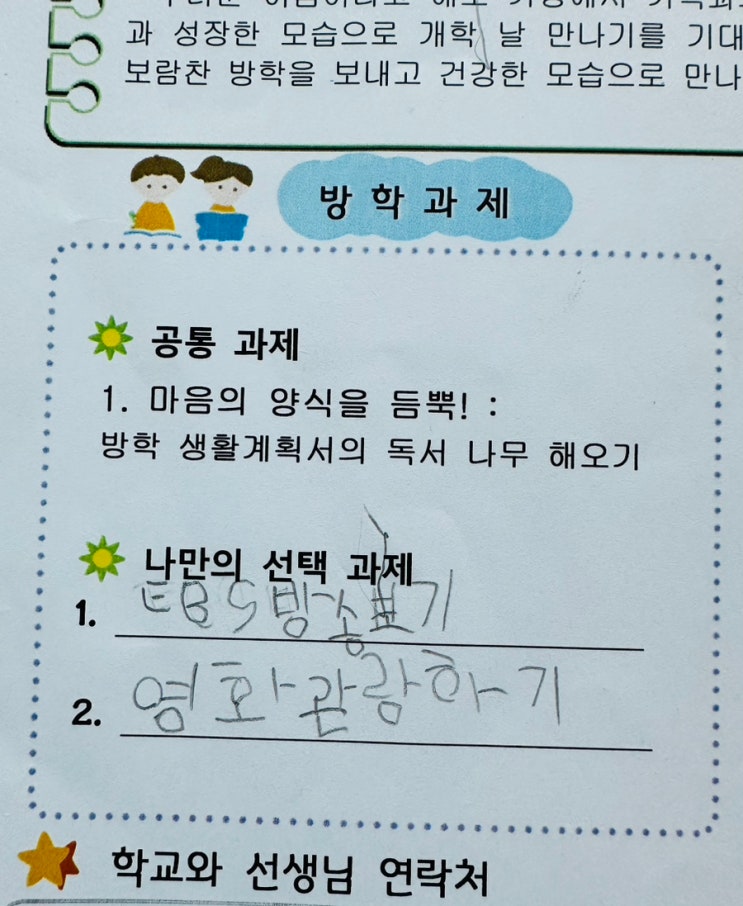 과 성장한 모습으로 개학 날 만나기를 기대
보람찬 방학을 보내고 건강한 모습으로 만나
방 학 과 제
공통 과제
1. 마음의 양식을 듬뿍! :
방학 생활계획서의 독서 나무 해오기
나만의 선택 과제
1. EBS방송보기
2. 영화관람하기
학교와 선생님 연락처